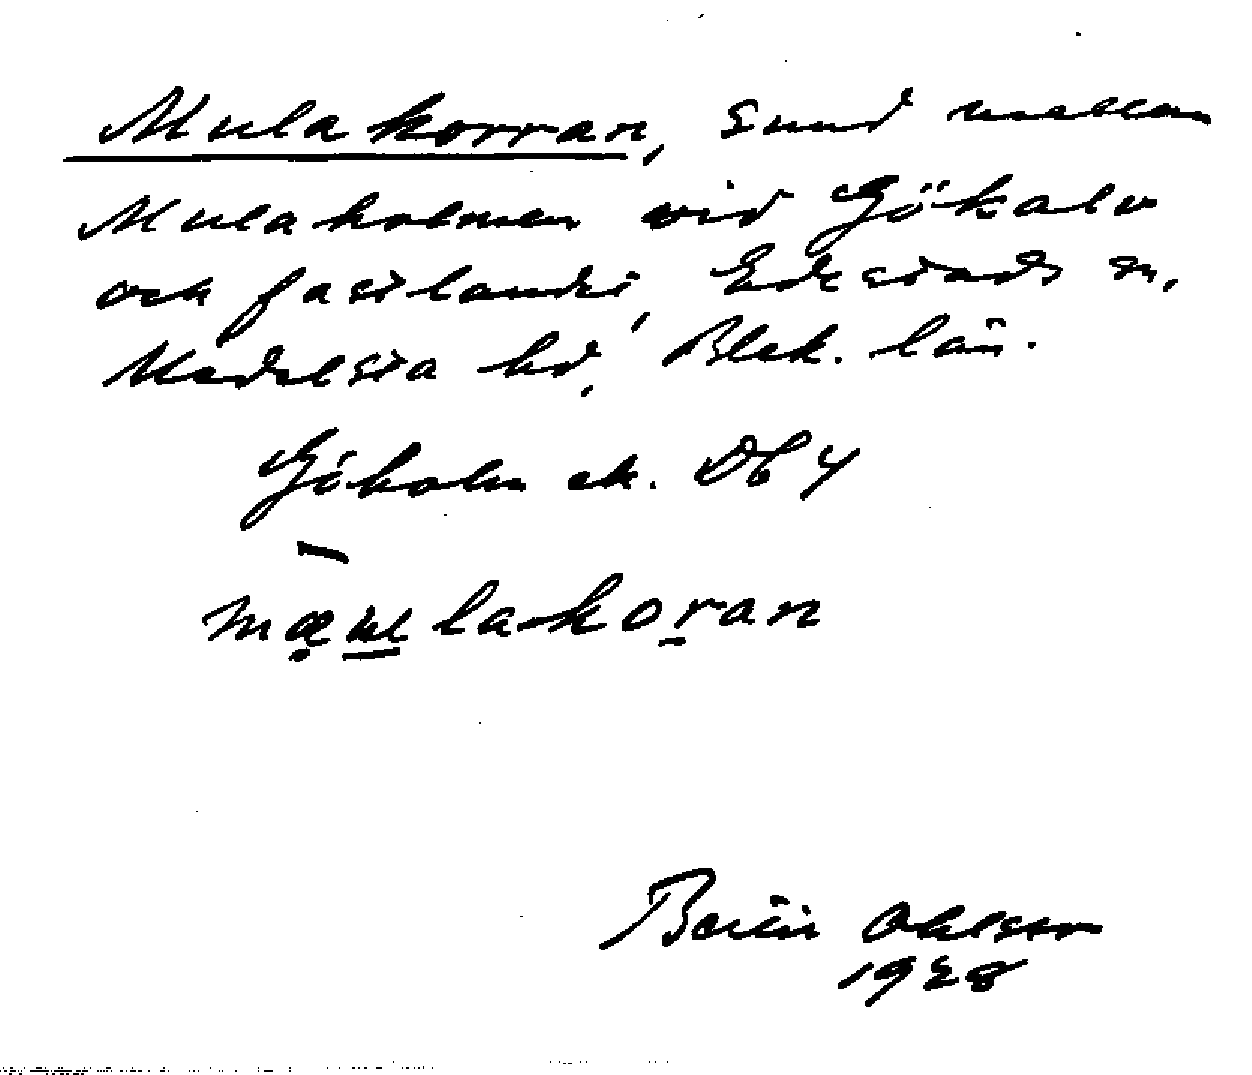 Mulakorran, sund mellan
Mulaholmen vid Gökalv
och fastlandet, Edestads sn,
Medelsta hd, Blek. län.
Gökalv ek. Db 4
mæulakoran
Bertil Ohlsson
1928